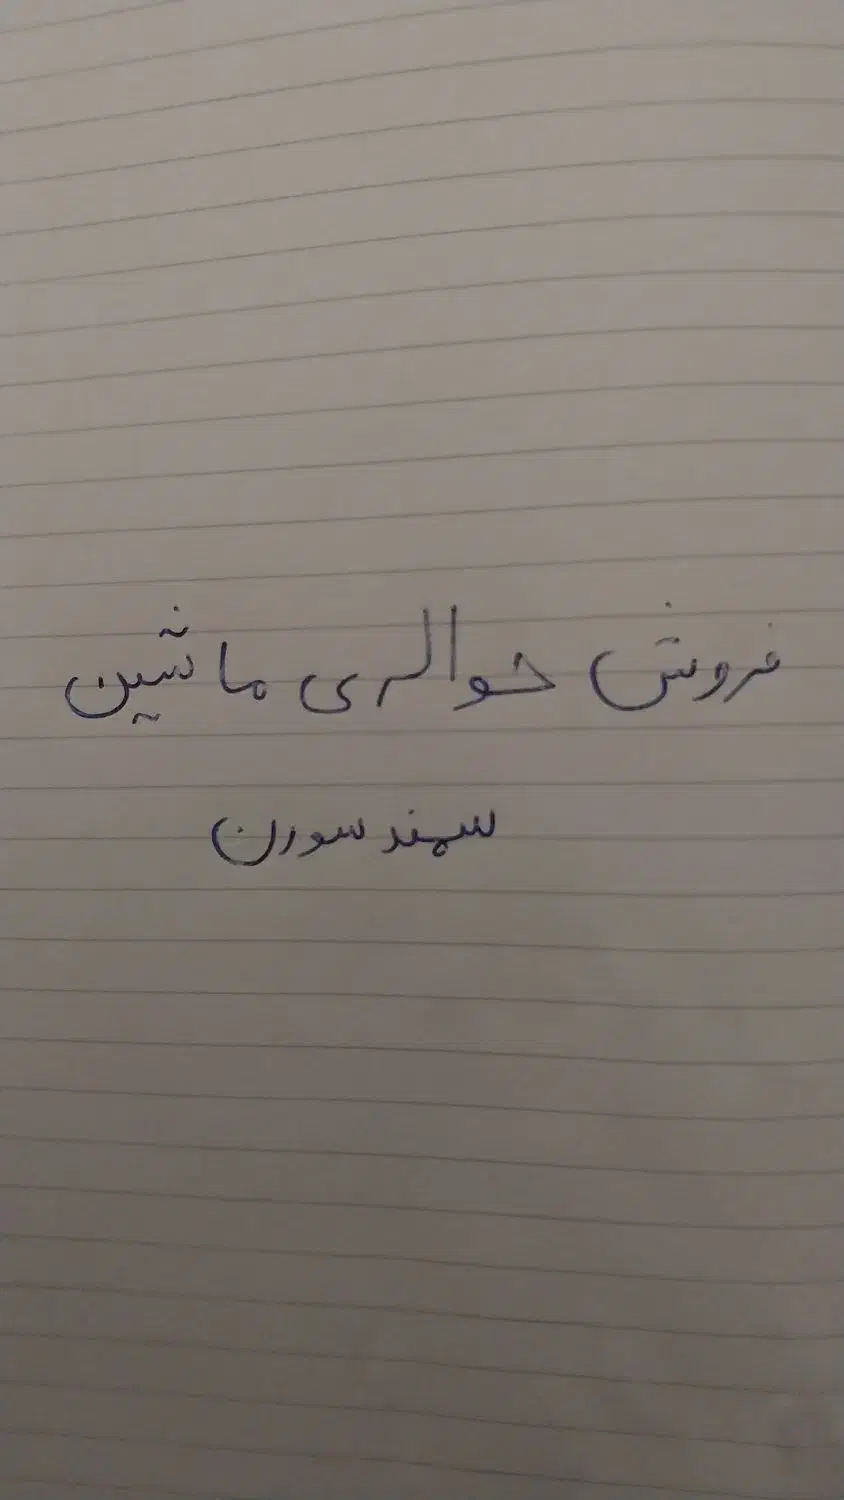 فروش حوالری ماشین
سمند سورن